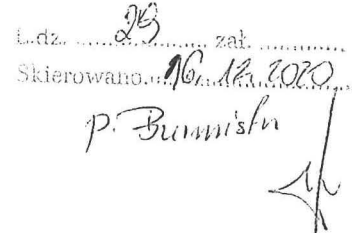 L.dz. 28 zał.
Skierowano 16.12.2020
p. Burmistrz